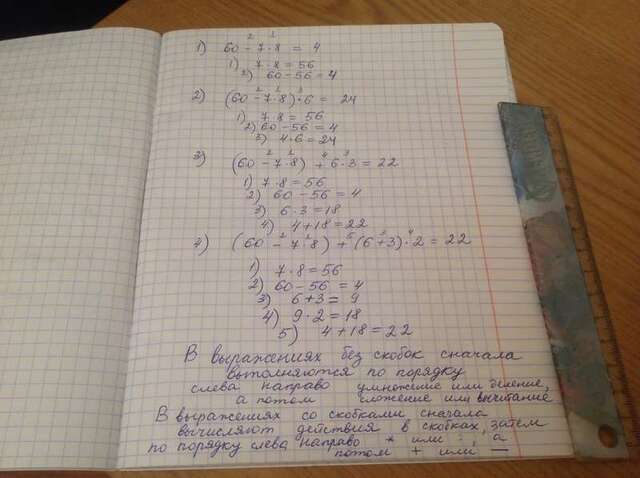 2 1
1) 60 - 7 · 8 = 4
1) 7 · 8 = 56
2) 60 - 56 = 4
2 1 3
2) (60 - 7 · 8) · 6 = 24
1) 7 · 8 = 56
2) 60 - 56 = 4
3) 4 · 6 = 24
2 1 4 3
3) (60 - 7 · 8) + 6 · 3 = 22
1) 7 · 8 = 56
2) 60 - 56 = 4
3) 6 · 3 = 18
4) 4 + 18 = 22
2 1 5 3 4
4) (60 - 7 · 8) + (6 + 3) · 2 = 22
1) 7 · 8 = 56
2) 60 - 56 = 4
3) 6 + 3 = 9
4) 9 · 2 = 18
5) 4 + 18 = 22
В выражениях без скобок сначала
выполняются по порядку
слева направо умножение или деление,
а потом сложение или вычитание
В выражениях со скобками сначала
вычисляют действия в скобках, затем
по порядку слева направо * или :, а
потом + или —